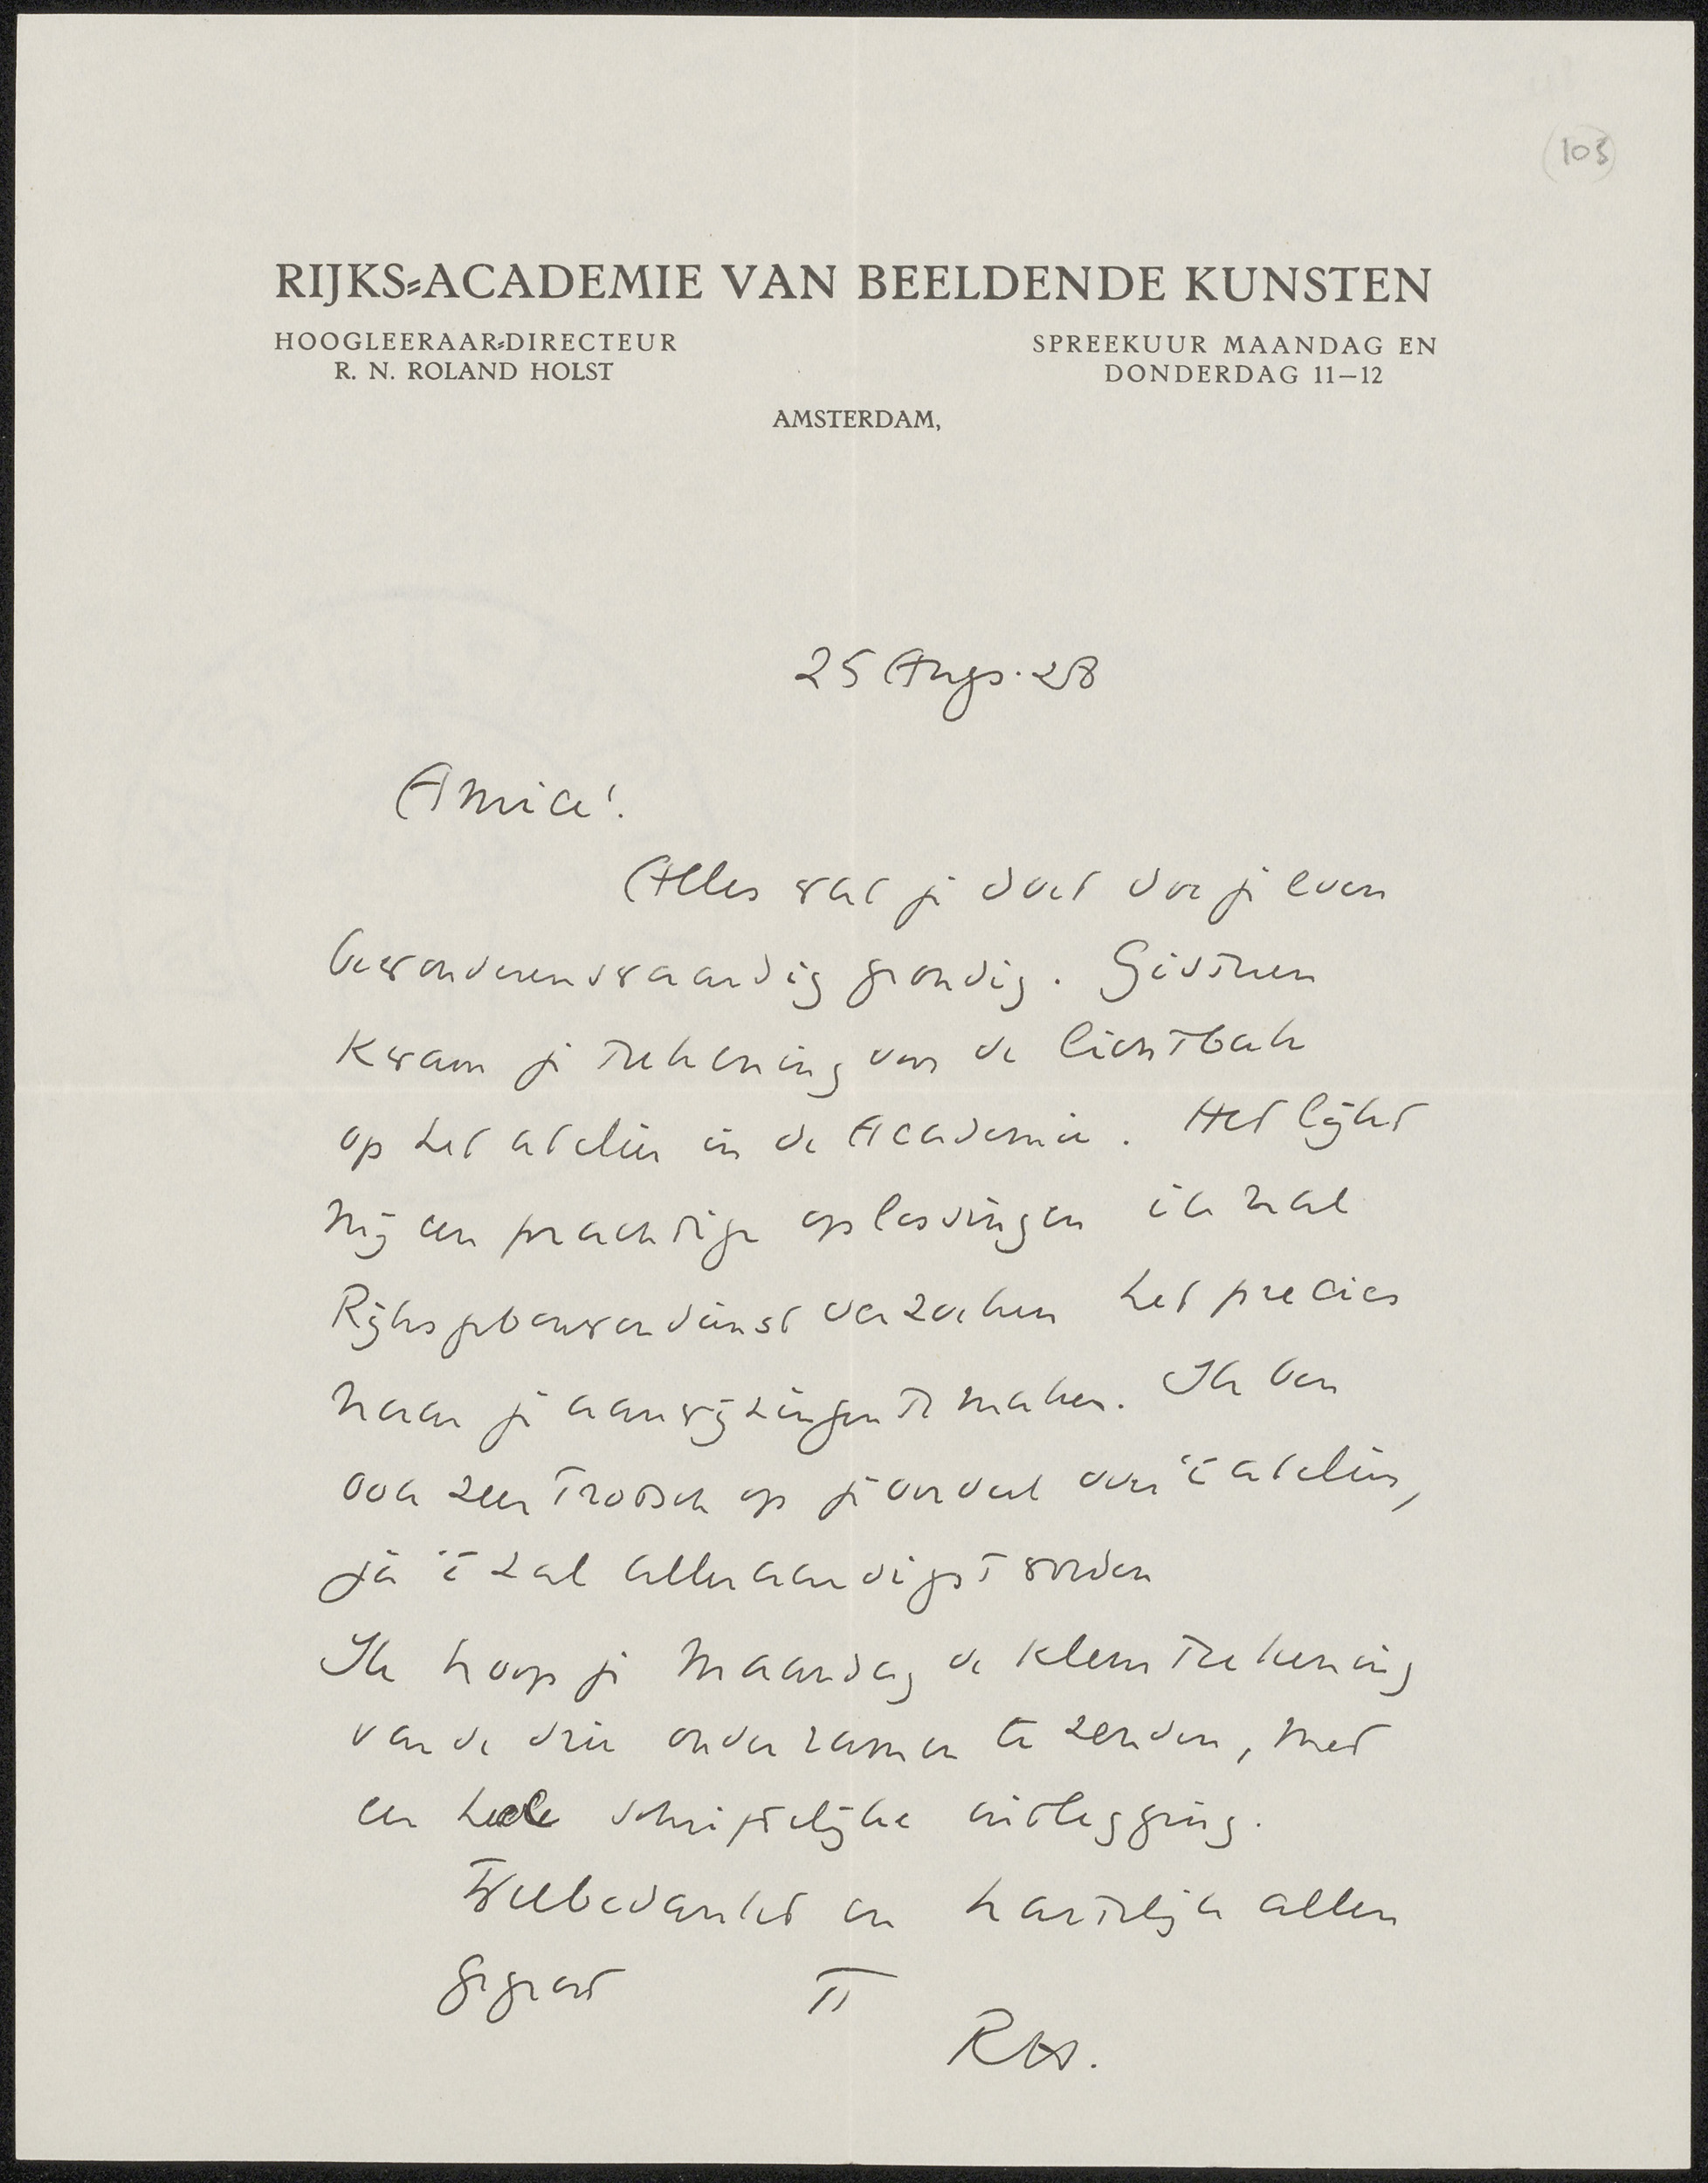 (103)
RIJKS=ACADEMIE VAN BEELDENDE KUNSTEN
HOOGLEERAAR=DIRECTEUR
R. N. ROLAND HOLST
SPREEKUUR MAANDAG EN
DONDERDAG 11—12
AMSTERDAM,
25 Augs. 28
Amice!
Alles wat je doet doe je even
bewonderenswaardig grondig. Gisteren
kwam je teekening van de lichtbak
op het atelier in de Academie. Het lijkt
mij een prachtige oplossingen ik zal
Rijksgebouwendienst verzoeken het precies
naar je aanwijzingen te maken. Ik ben
ook zeer trotsch op je oordeel over 't atelier,
ja 't zal alleraardigst worden
Ik hoop je Maandag de kleine teekening
van de drie onderramen te zenden, met
een heele schriftelijke uitlegging.
Welbedankt en hartelijk allen
gegroet tt
RHs.